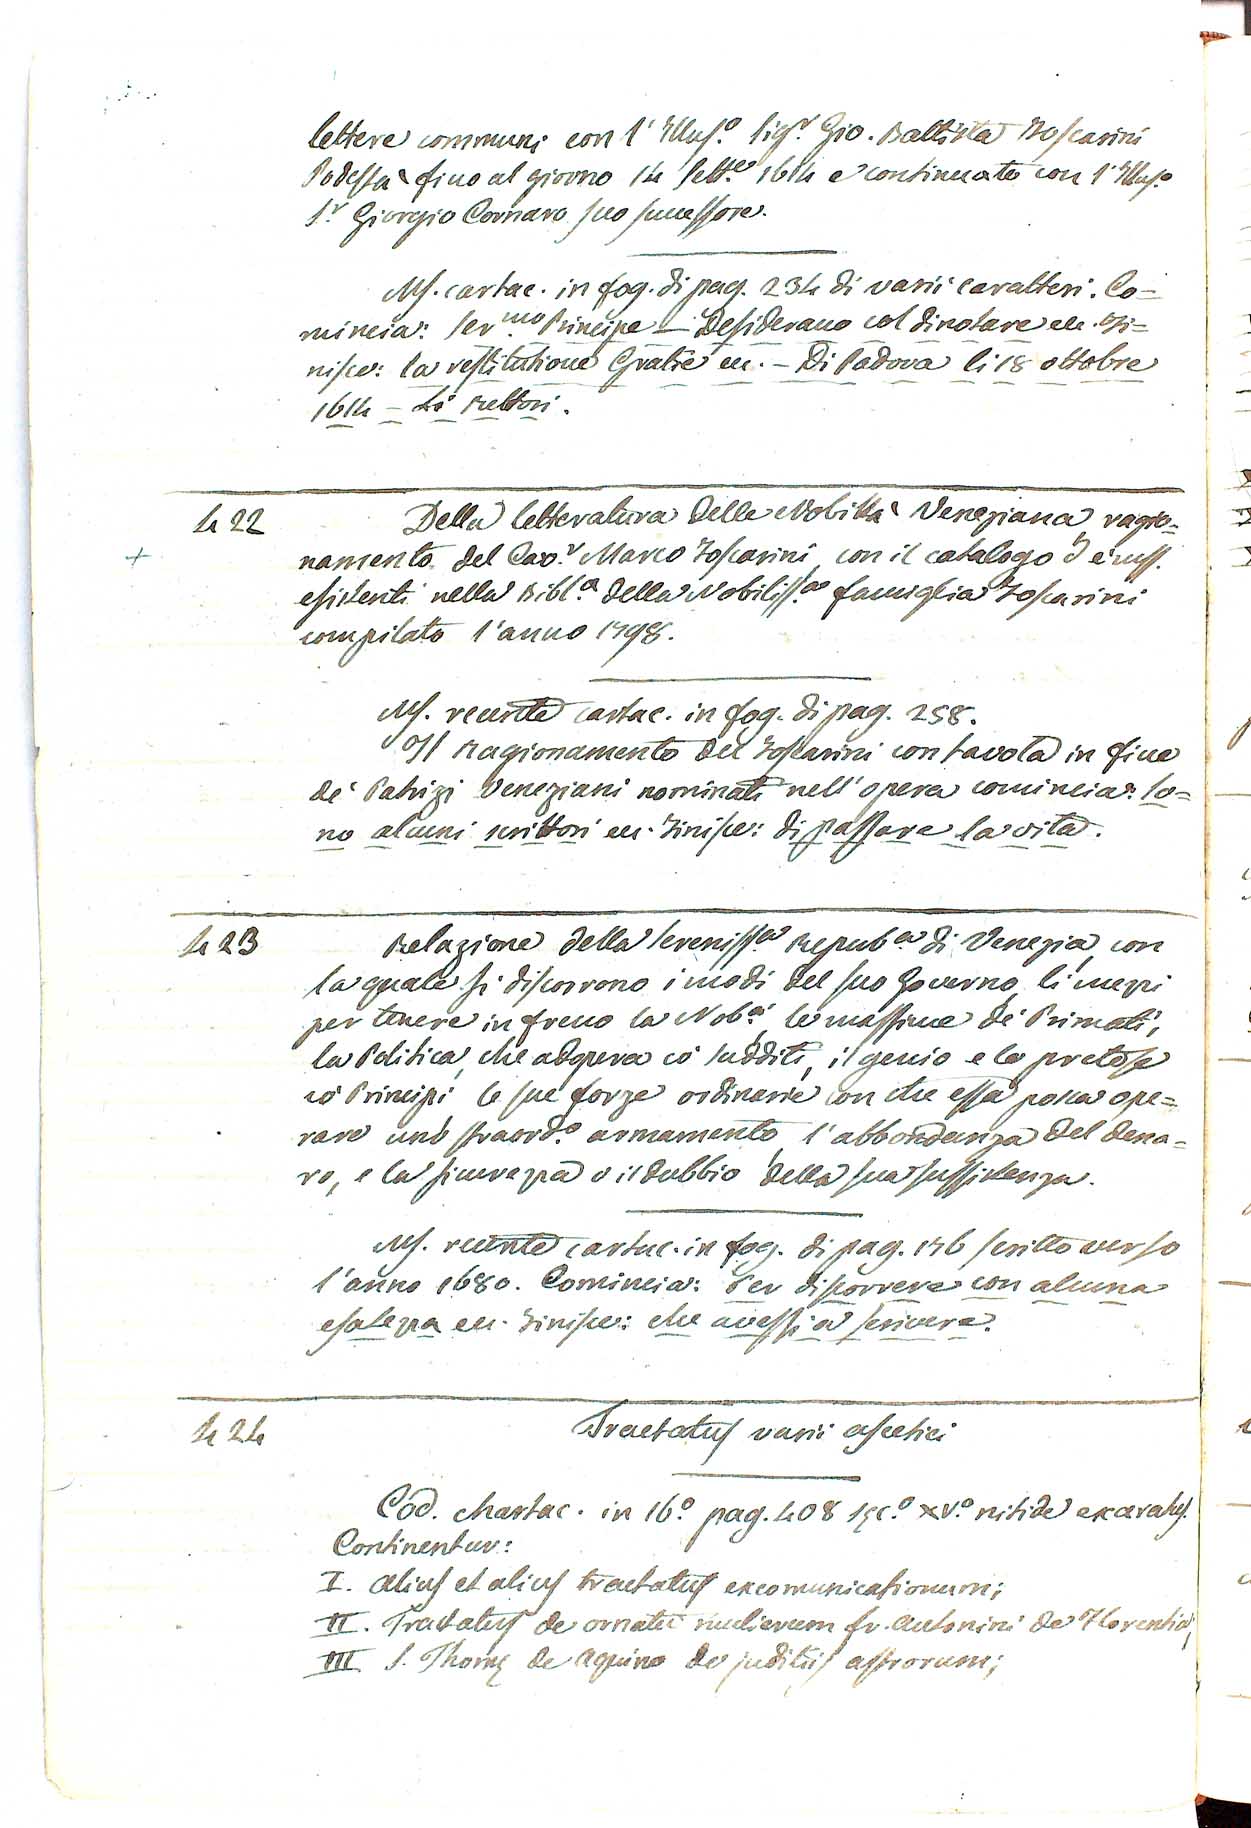 lettere communi con l'Illus.º Sig.r Gio. Battista Foscarini
Podestà fino al giorno 14 Sett.e 1614 e continuate con l'Illus.º
S.r Giorgio Cornaro suo successore.
Ms. cartac. in fog. di pag. 234 di varii caratteri. Co=
mincia: Ser.mo Principe – Desiderano col dinotare ec. Fi=
nisce: la restitutione Gratie ec. – Di Padova li 18 ottobre
1614 – Li Rettori.
422 Della letteratura della Nobiltà Veneziana, ragio=
+ namento del Cav.r Marco Foscarini, con il catalogo d'e' mss.
esistenti nella Bibl.a della Nobiliss.a famiglia Foscarini
compilato l'anno 1798.
Ms. recente cartac. in fog. di pag. 258.
Il Ragionamento del Foscarini con tavola in fine
de' Patrizi Veneziani nominati nell'opera comincia: So=
no alcuni scrittori ec. Finisce: di passare la vita.
423 Relazione della Sereniss.a Repub.a di Venezia, con
la quale si discorrono i modi del suo Governo, li mezzi
per tenere in freno la Nob.a, le massime de' Primati,
la Politica, che adopera co' sudditi, il genio e le pretese
co' Principi, le sue forze ordinarie con che essa possa ope=
rare uno straord.º armamento, l'abbondanza del dena=
ro, e la sicurezza o il dubbio della sua sussistenza.
Ms. recente cartac. in fog. di pag. 176 scritto verso
l'anno 1680. Comincia: Per discorrere con alcuna
esatezza ec. Finisce: che avessi a scrivere.
424 Tractatus varii ascetici
Cod. chartac. in 16º pag. 408 sęc.º XV.º nitide exaratus.
Continentur:
I. Alius et alius tractatus excomunicationum;
II. Tractatus de ornatu mulierum fr. Antonini de Florentia;
III S. Thomę de Aquino de juditiis astrorum;